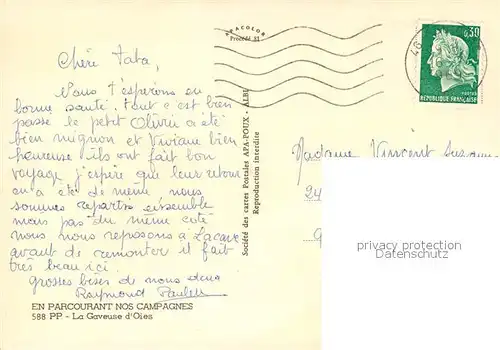 Chéri Tata,
Nous t'espérons en
bonne santé, tout c'est bien
passé le petit Olivié a été
bien mignon et Viviane bien
heureuse ils ont fait bon
voyage j'espère que leur retour
en a été de même nous
sommes repartis ensemble
mais pas du même coté
nous nous reposons à Lacave
avant de remonter il fait
très beau ici.
grosses bises de nous deux
Raymond Paulette
EN PARCOURANT NOS CAMPAGNES
588 PP - La Gaveuse d'Oies
APACOLOR
Procédé 81
Société des cartes Postales APA-POUX - ALBI
Reproduction interdite
0,30
POSTES
REPUBLIQUE FRANÇAISE
Madame Vincent Suzanne
24
privacy protection
Datenschutz